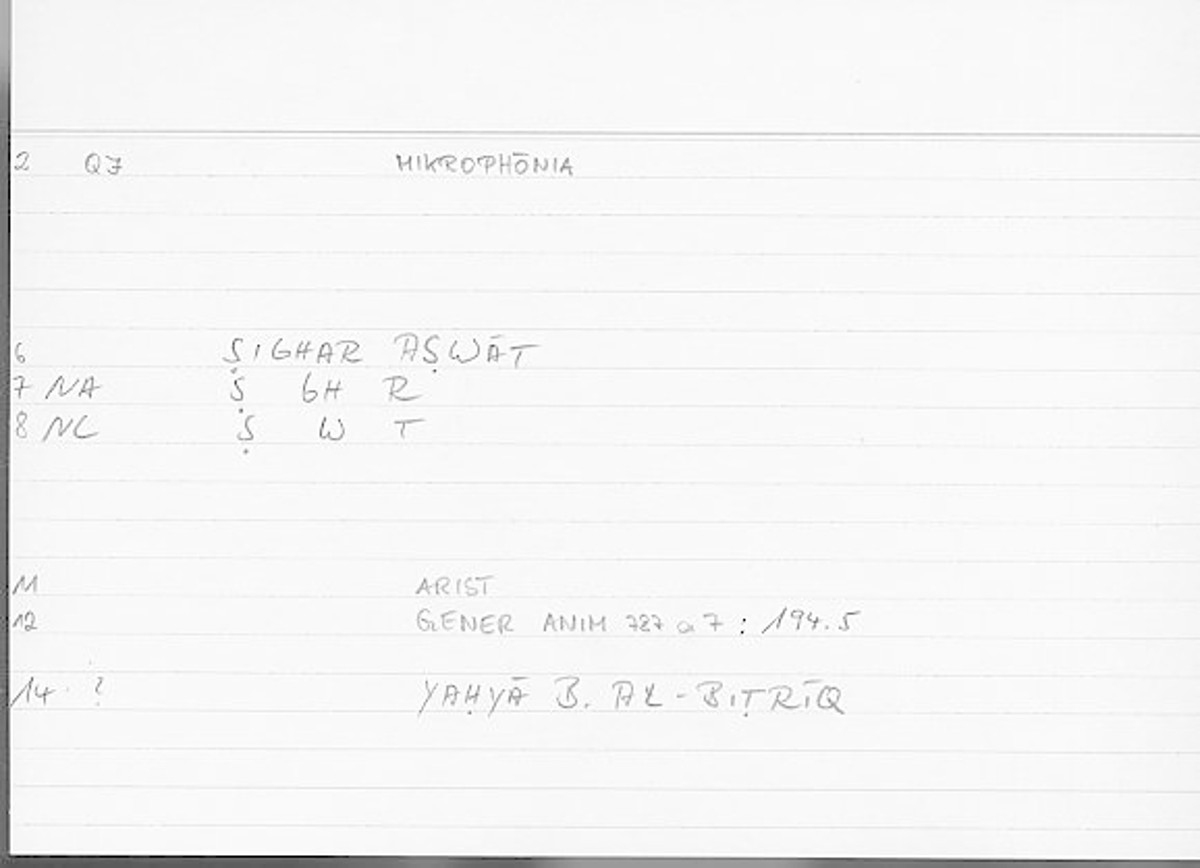 2 Q7 MIKROPHŌNIA
6 ṢIGHAR AṢWĀT
7 NA Ṣ GH R
8 NC Ṣ W T
11 ARIST
12 GENER ANIM 787 a 7 : 194.5
14 ? YAḤYĀ B. AL-BIṬRĪQ